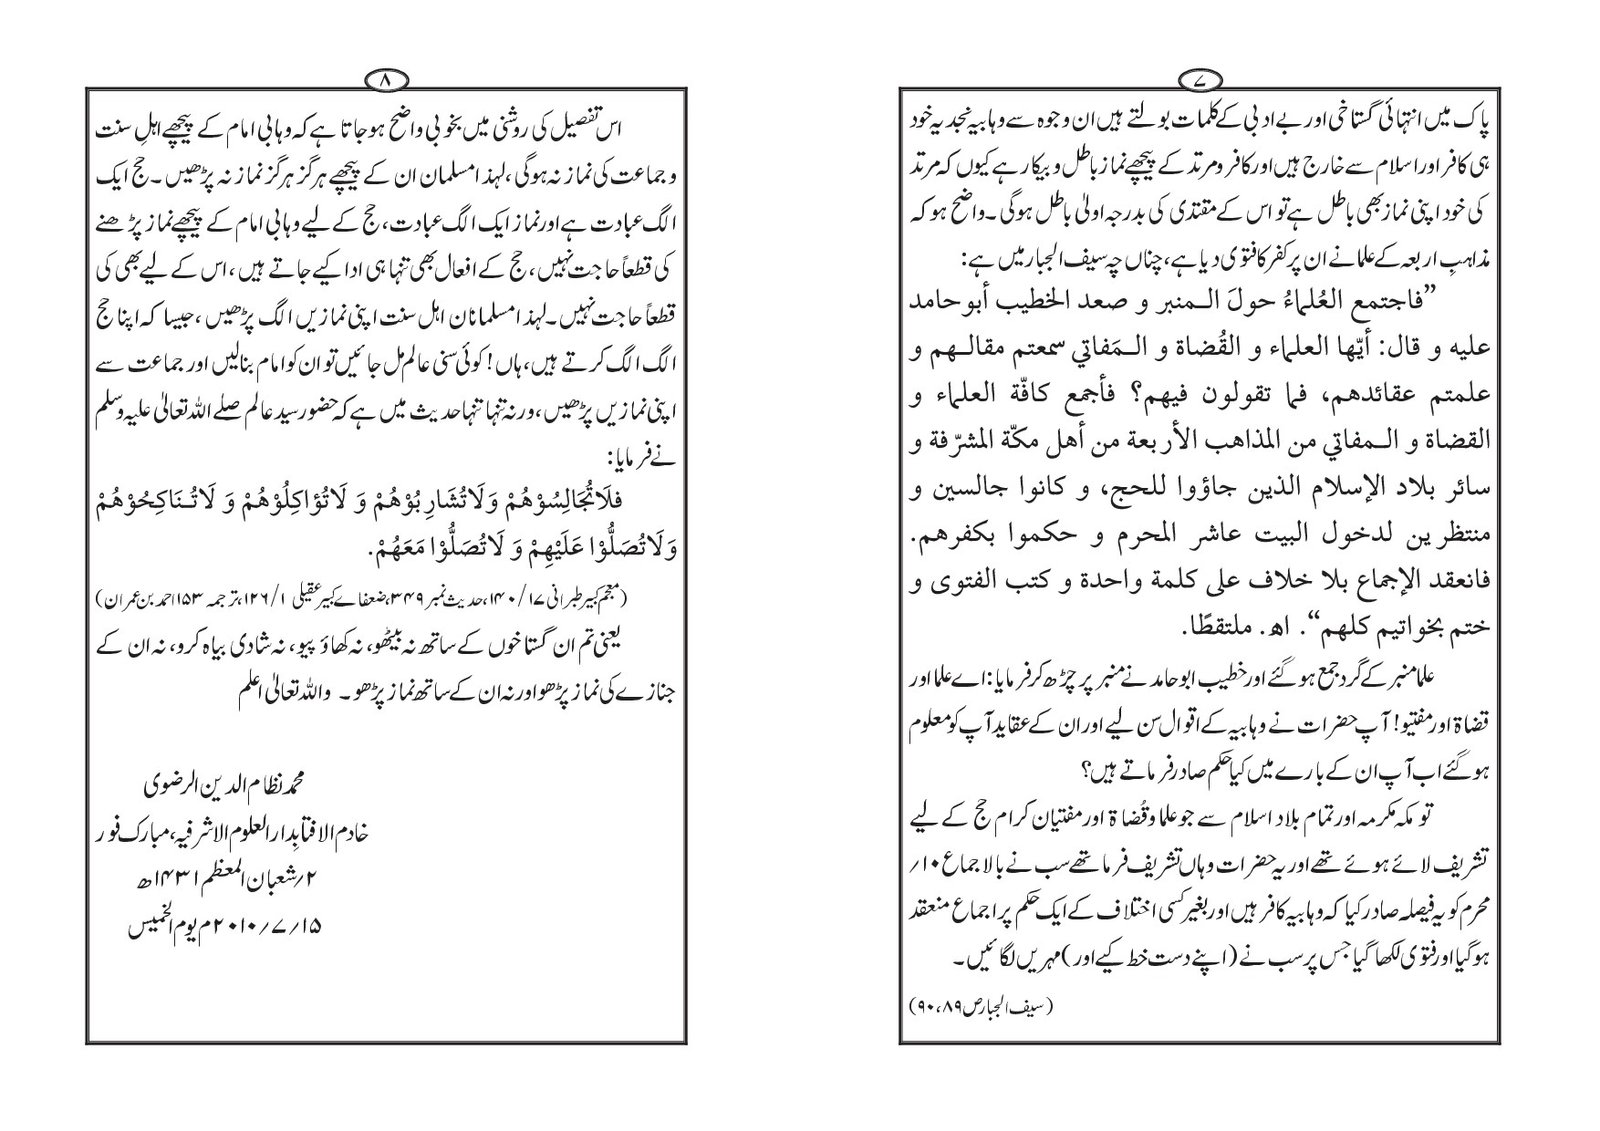 ۷
پاک میں انتہائی گستاخی اور بے ادبی کے کلمات بولتے ہیں ان وجوہ سے وہابیہ نجدیہ خود
ہی کافر اور اسلام سے خارج ہیں اور کافر و مرتد کے پیچھے نماز باطل و بیکار ہے کیوں کہ مرتد
کی خود اپنی نماز بھی باطل ہے تو اس کے مقتدی کی بدرجہ اولیٰ باطل ہوگی۔ واضح ہو کہ
مذاہبِ اربعہ کے علما نے ان پر کفر کا فتویٰ دیا ہے، چناں چہ سیف الجبار میں ہے:
”فاجتمع العُلماءُ حولَ المنبر و صعد الخطيب أبو حامد
عليه و قال: أيّها العلماء و القُضاة و المَفاتي سمعتم مقالهم و
علمتم عقائدهم، فما تقولون فيهم؟ فأجمع كافّة العلماء و
القضاة و المفاتي من المذاهب الأربعة من أهل مكّة المشرّفة و
سائر بلاد الإسلام الذين جاؤوا للحج، و كانوا جالسين و
منتظرين لدخول البيت عاشر المحرم و حكموا بكفرهم.
فانعقد الإجماع بلا خلاف على كلمة واحدة و كتب الفتوى و
ختم بخواتيم كلهم“. اهـ. ملتقطًا.
علما منبر کے گرد جمع ہو گئے اور خطیب ابو حامد نے منبر پر چڑھ کر فرمایا: اے علما اور
قضاۃ اور مفتیو! آپ حضرات نے وہابیہ کے اقوال سن لیے اور ان کے عقاید آپ کو معلوم
ہو گئے اب آپ ان کے بارے میں کیا حکم صادر فرماتے ہیں؟
تو مکہ مکرمہ اور تمام بلاد اسلام سے جو علما و قُضاۃ اور مفتیان کرام حج کے لیے
تشریف لائے ہوئے تھے اور یہ حضرات وہاں تشریف فرما تھے سب نے بالاجماع ۱۰؍
محرم کو یہ فیصلہ صادر کیا کہ وہابیہ کافر ہیں اور بغیر کسی اختلاف کے ایک حکم پر اجماع منعقد
ہو گیا اور فتویٰ لکھا گیا جس پر سب نے (اپنے دست خط کیے اور) مہریں لگائیں۔
(سیف الجبار ص ۸۹، ۹۰)
۸
اس تفصیل کی روشنی میں بخوبی واضح ہو جاتا ہے کہ وہابی امام کے پیچھے اہلِ سنت
و جماعت کی نماز نہ ہوگی، لہذا مسلمان ان کے پیچھے ہرگز ہرگز نماز نہ پڑھیں۔ حج ایک
الگ عبادت ہے اور نماز ایک الگ عبادت، حج کے لیے وہابی امام کے پیچھے نماز پڑھنے
کی قطعاً حاجت نہیں، حج کے افعال بھی تنہا ہی ادا کیے جاتے ہیں، اس کے لیے بھی کی
قطعاً حاجت نہیں۔ لہذا مسلمانان اہل سنت اپنی نمازیں الگ پڑھیں، جیسا کہ اپنا حج
الگ الگ کرتے ہیں، ہاں! کوئی سنی عالم مل جائیں تو ان کو امام بنالیں اور جماعت سے
اپنی نمازیں پڑھیں، ورنہ تنہا تنہا حدیث میں ہے کہ حضور سید عالم صلے اللہ تعالیٰ علیہ وسلم
نے فرمایا:
فَلَا تُجَالِسُوْهُمْ وَلَا تُشَارِبُوْهُمْ وَ لَا تُؤَاكِلُوْهُمْ وَ لَا تُنَاكِحُوْهُمْ
وَلَا تُصَلُّوْا عَلَيْهِمْ وَ لَا تُصَلُّوْا مَعَهُمْ.
(معجم کبیر طبرانی ۱۷/۱۴۰، حدیث نمبر ۳۴۹، ضعفاے کبیر عقیلی ۱/۱۲۶، ترجمہ ۱۵۳ احمد بن عمران)
یعنی تم ان گستاخوں کے ساتھ نہ بیٹھو، نہ کھاؤ پیو، نہ شادی بیاہ کرو، نہ ان کے
جنازے کی نماز پڑھو اور نہ ان کے ساتھ نماز پڑھو۔ واللہ تعالیٰ اعلم
محمد نظام الدین الرضوی
خادم الافتا بدار العلوم الاشرفیہ، مبارک فور
۲؍شعبان المعظم ۱۴۳۱ھ
۱۵؍۷؍۲۰۱۰م یوم الخمیس